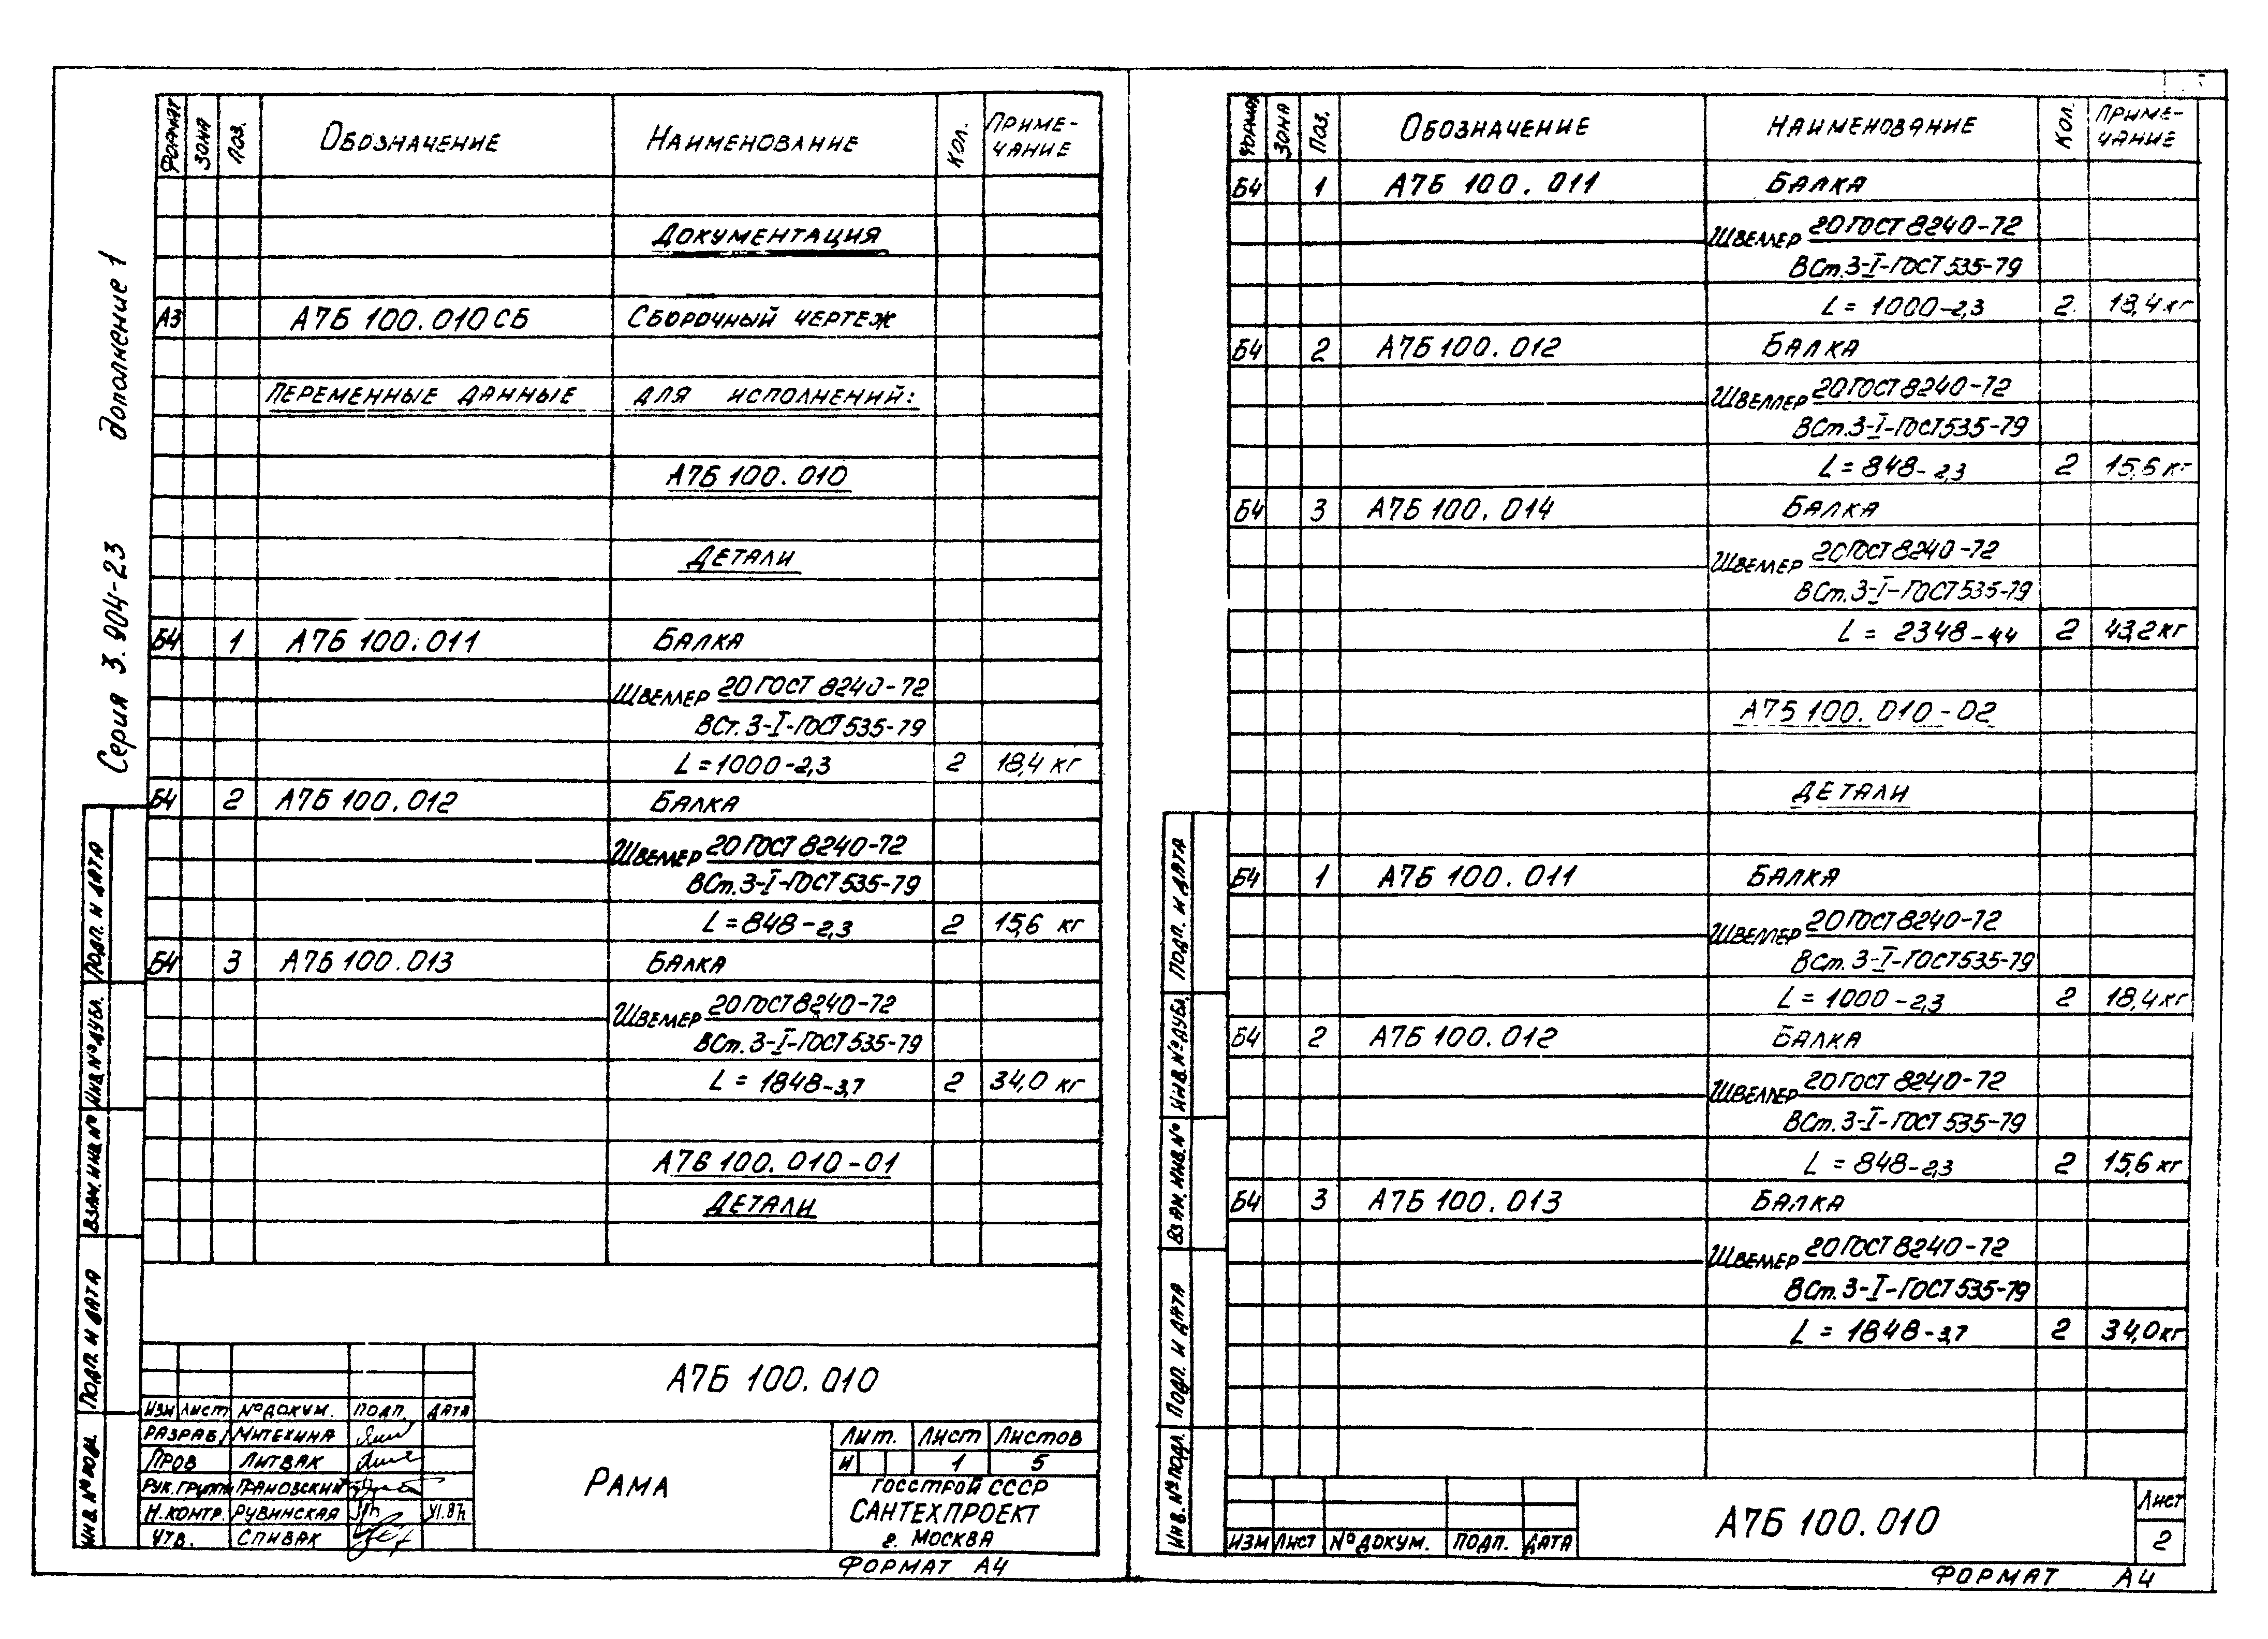 Серия 3.904-23 дополнение 1
ФОРМАТ ЗОНА ПОЗ. ОБОЗНАЧЕНИЕ НАИМЕНОВАНИЕ КОЛ. ПРИМЕ-
ЧАНИЕ
ДОКУМЕНТАЦИЯ
А3 А7Б 100.010 СБ СБОРОЧНЫЙ ЧЕРТЕЖ
ПЕРЕМЕННЫЕ ДАННЫЕ ДЛЯ ИСПОЛНЕНИЙ:
А7Б 100.010
ДЕТАЛИ
Б4 1 А7Б 100.011 БАЛКА
ШВЕЛЛЕР 20 ГОСТ 8240-72
ВСт. 3-I-ГОСТ 535-79
L=1000-2,3 2 18,4 кг
Б4 2 А7Б 100.012 БАЛКА
ШВЕЛЛЕР 20 ГОСТ 8240-72
ВСт. 3-I-ГОСТ 535-79
L=848-2,3 2 15,6 кг
Б4 3 А7Б 100.013 БАЛКА
ШВЕЛЛЕР 20 ГОСТ 8240-72
ВСт. 3-I-ГОСТ 535-79
L=1848-3,7 2 34,0 кг
А7Б 100.010-01
ДЕТАЛИ
ПОДП. И ДАТА
ИНВ. № ДУБЛ.
ВЗАМ. ИНВ. №
ПОДП. И ДАТА
ИНВ. № ПОДЛ.
А7Б 100.010
ИЗМ ЛИСТ № ДОКУМ. ПОДП. ДАТА
РАЗРАБ. МИТЕХИНА
ПРОВ ЛИТВАК
РУК. ГРУППЫ ГРАНОВСКИЙ
Н.КОНТР. РУВИНСКАЯ VI.87г
УТВ. СПИВАК
РАМА
ЛИТ. ЛИСТ ЛИСТОВ
И 1 5
ГОССТРОЙ СССР
САНТЕХПРОЕКТ
г. МОСКВА
ФОРМАТ А4
ФОРМАТ ЗОНА ПОЗ. ОБОЗНАЧЕНИЕ НАИМЕНОВАНИЕ КОЛ. ПРИМЕ-
ЧАНИЕ
Б4 1 А7Б 100.011 БАЛКА
ШВЕЛЛЕР 20 ГОСТ 8240-72
ВСт. 3-I-ГОСТ 535-79
L=1000-2,3 2 18,4 кг
Б4 2 А7Б 100.012 БАЛКА
ШВЕЛЛЕР 20 ГОСТ 8240-72
ВСт. 3-I-ГОСТ 535-79
L=848-2,3 2 15,6 кг
Б4 3 А7Б 100.014 БАЛКА
ШВЕЛЛЕР 20 ГОСТ 8240-72
ВСт. 3-I-ГОСТ 535-79
L=2348-4,4 2 43,2 кг
А7Б 100.010-02
ДЕТАЛИ
Б4 1 А7Б 100.011 БАЛКА
ШВЕЛЛЕР 20 ГОСТ 8240-72
ВСт. 3-I-ГОСТ 535-79
L=1000-2,3 2 18,4 кг
Б4 2 А7Б 100.012 БАЛКА
ШВЕЛЛЕР 20 ГОСТ 8240-72
ВСт. 3-I-ГОСТ 535-79
L=848-2,3 2 15,6 кг
Б4 3 А7Б 100.013 БАЛКА
ШВЕЛЛЕР 20 ГОСТ 8240-72
ВСт. 3-I-ГОСТ 535-79
L=1848-3,7 2 34,0 кг
ПОДП. И ДАТА
ИНВ. № ДУБЛ.
ВЗАМ. ИНВ. №
ПОДП. И ДАТА
ИНВ. № ПОДЛ.
ИЗМ ЛИСТ № ДОКУМ. ПОДП. ДАТА
А7Б 100.010
ЛИСТ
2
ФОРМАТ А4